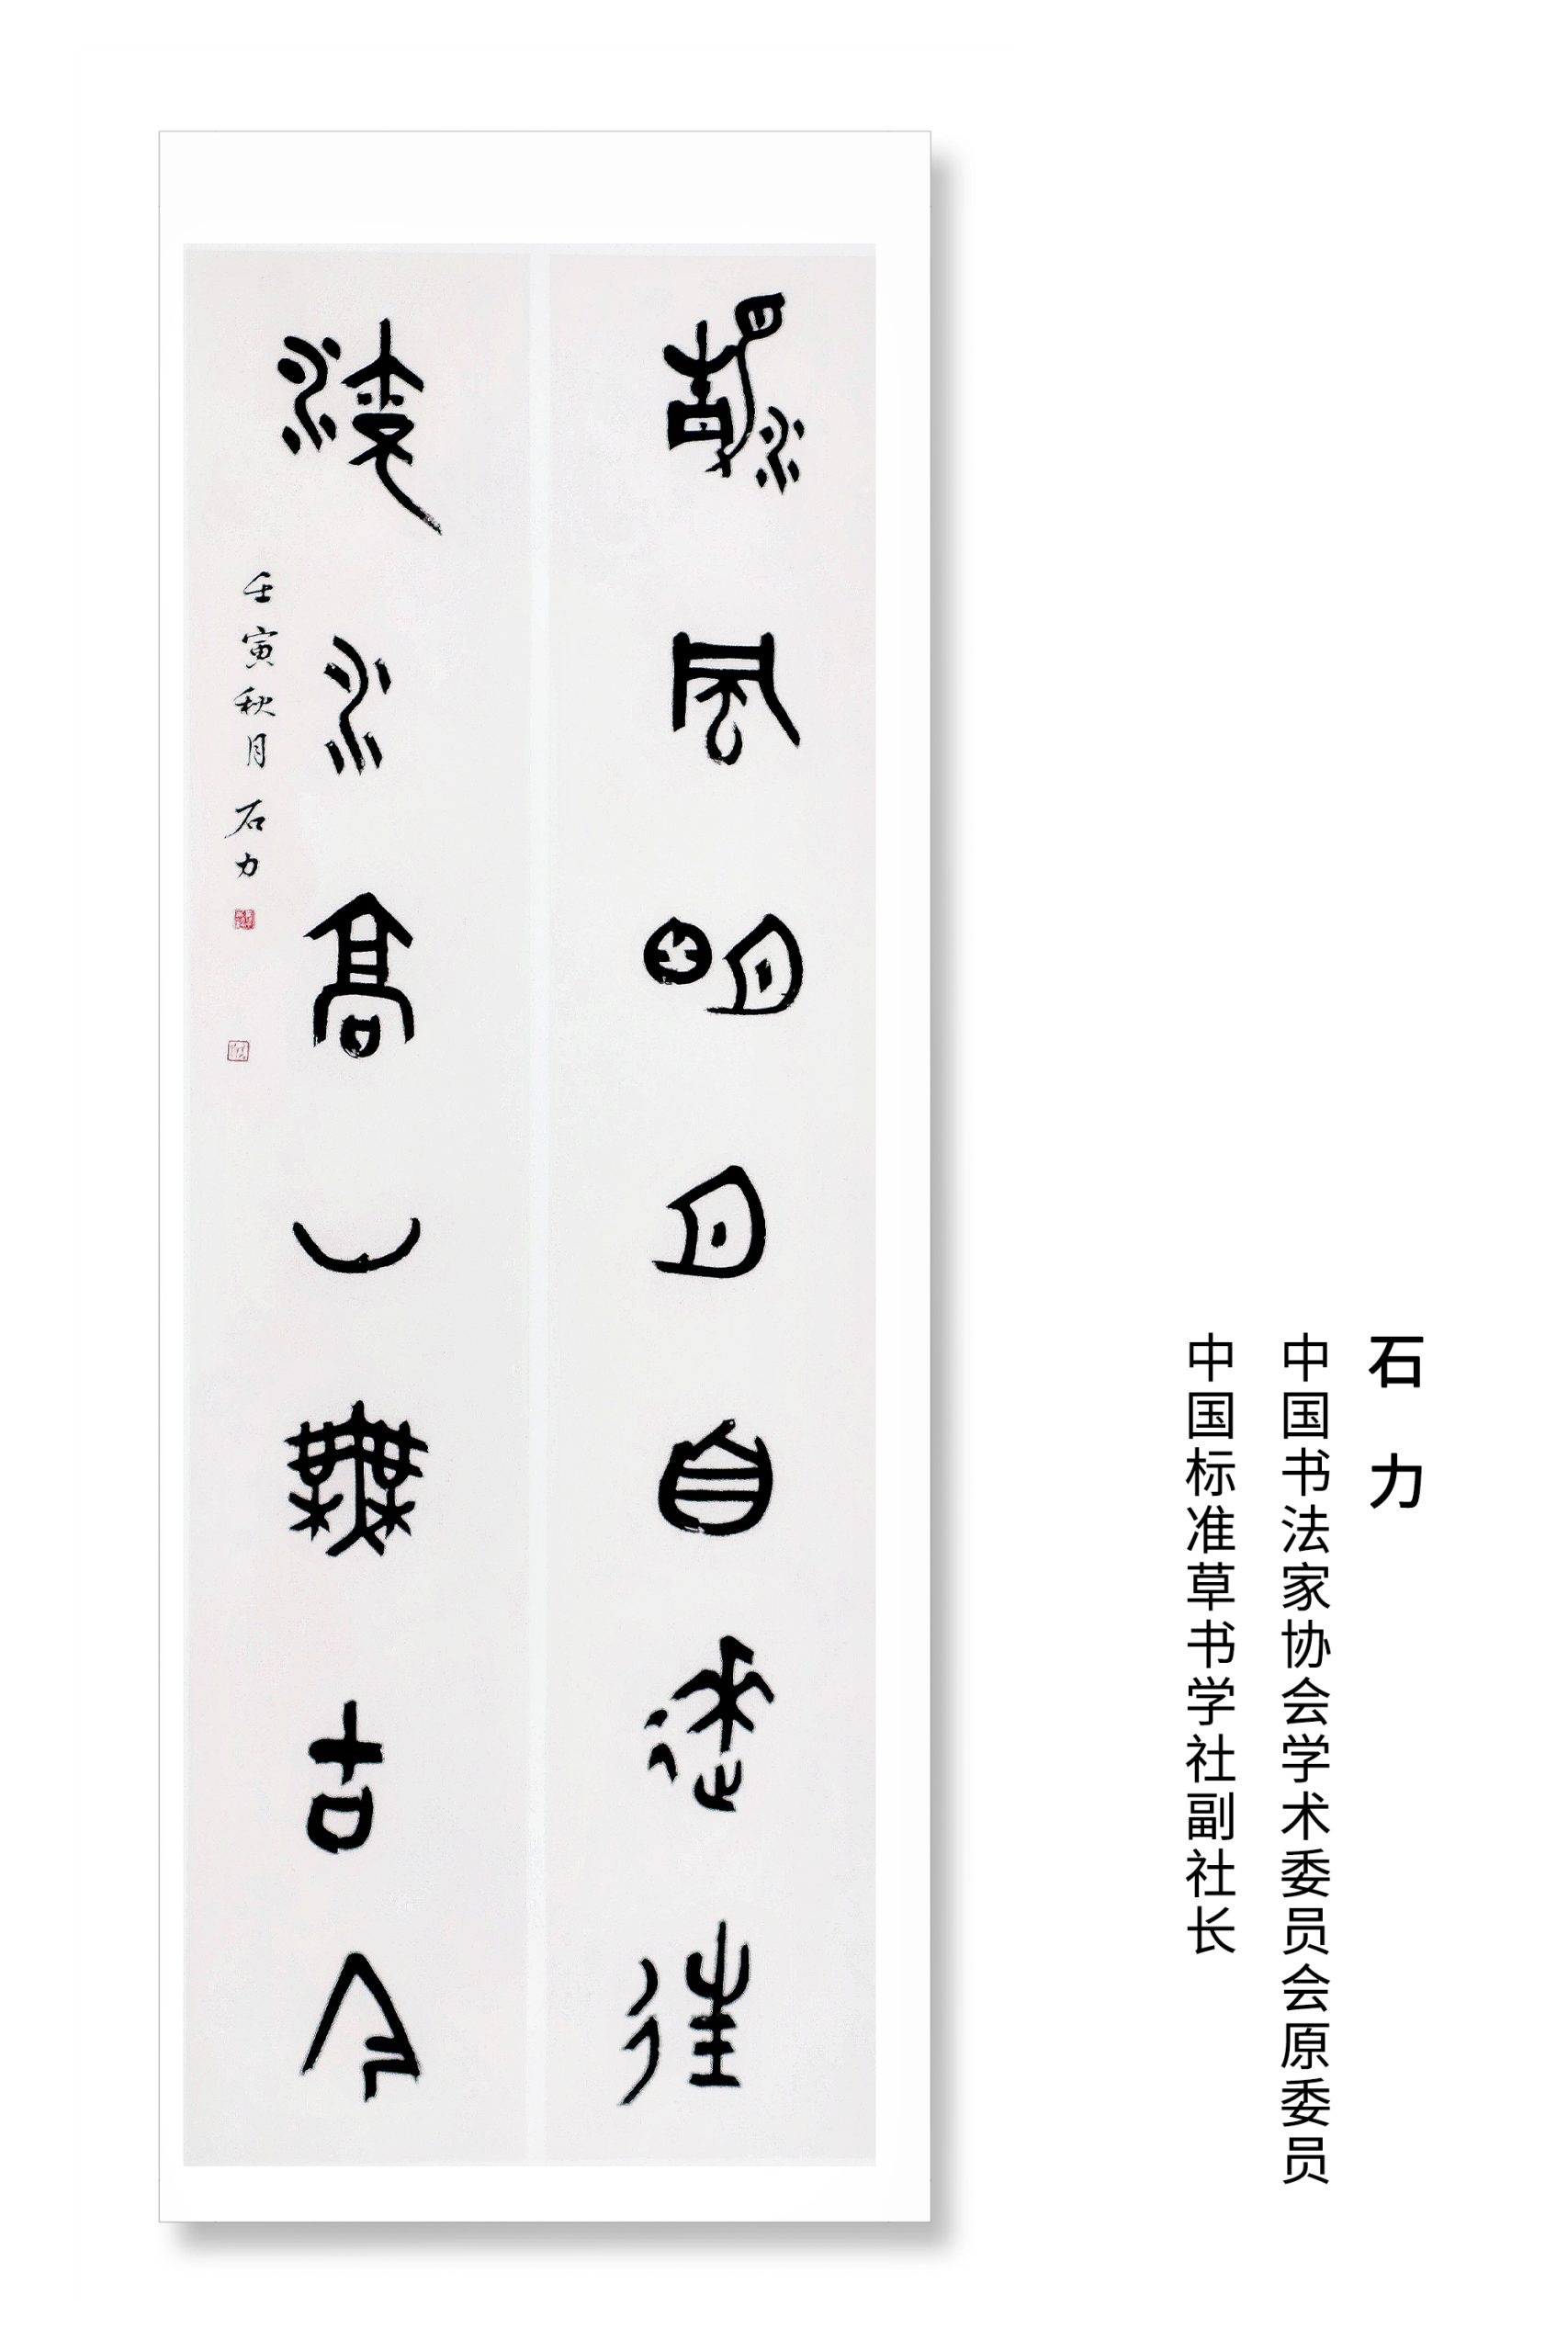 風明月自來往
水高山無古今
壬寅秋月 石力
石力
中国书法家协会学术委员会原委员
中国标准草书学社副社长